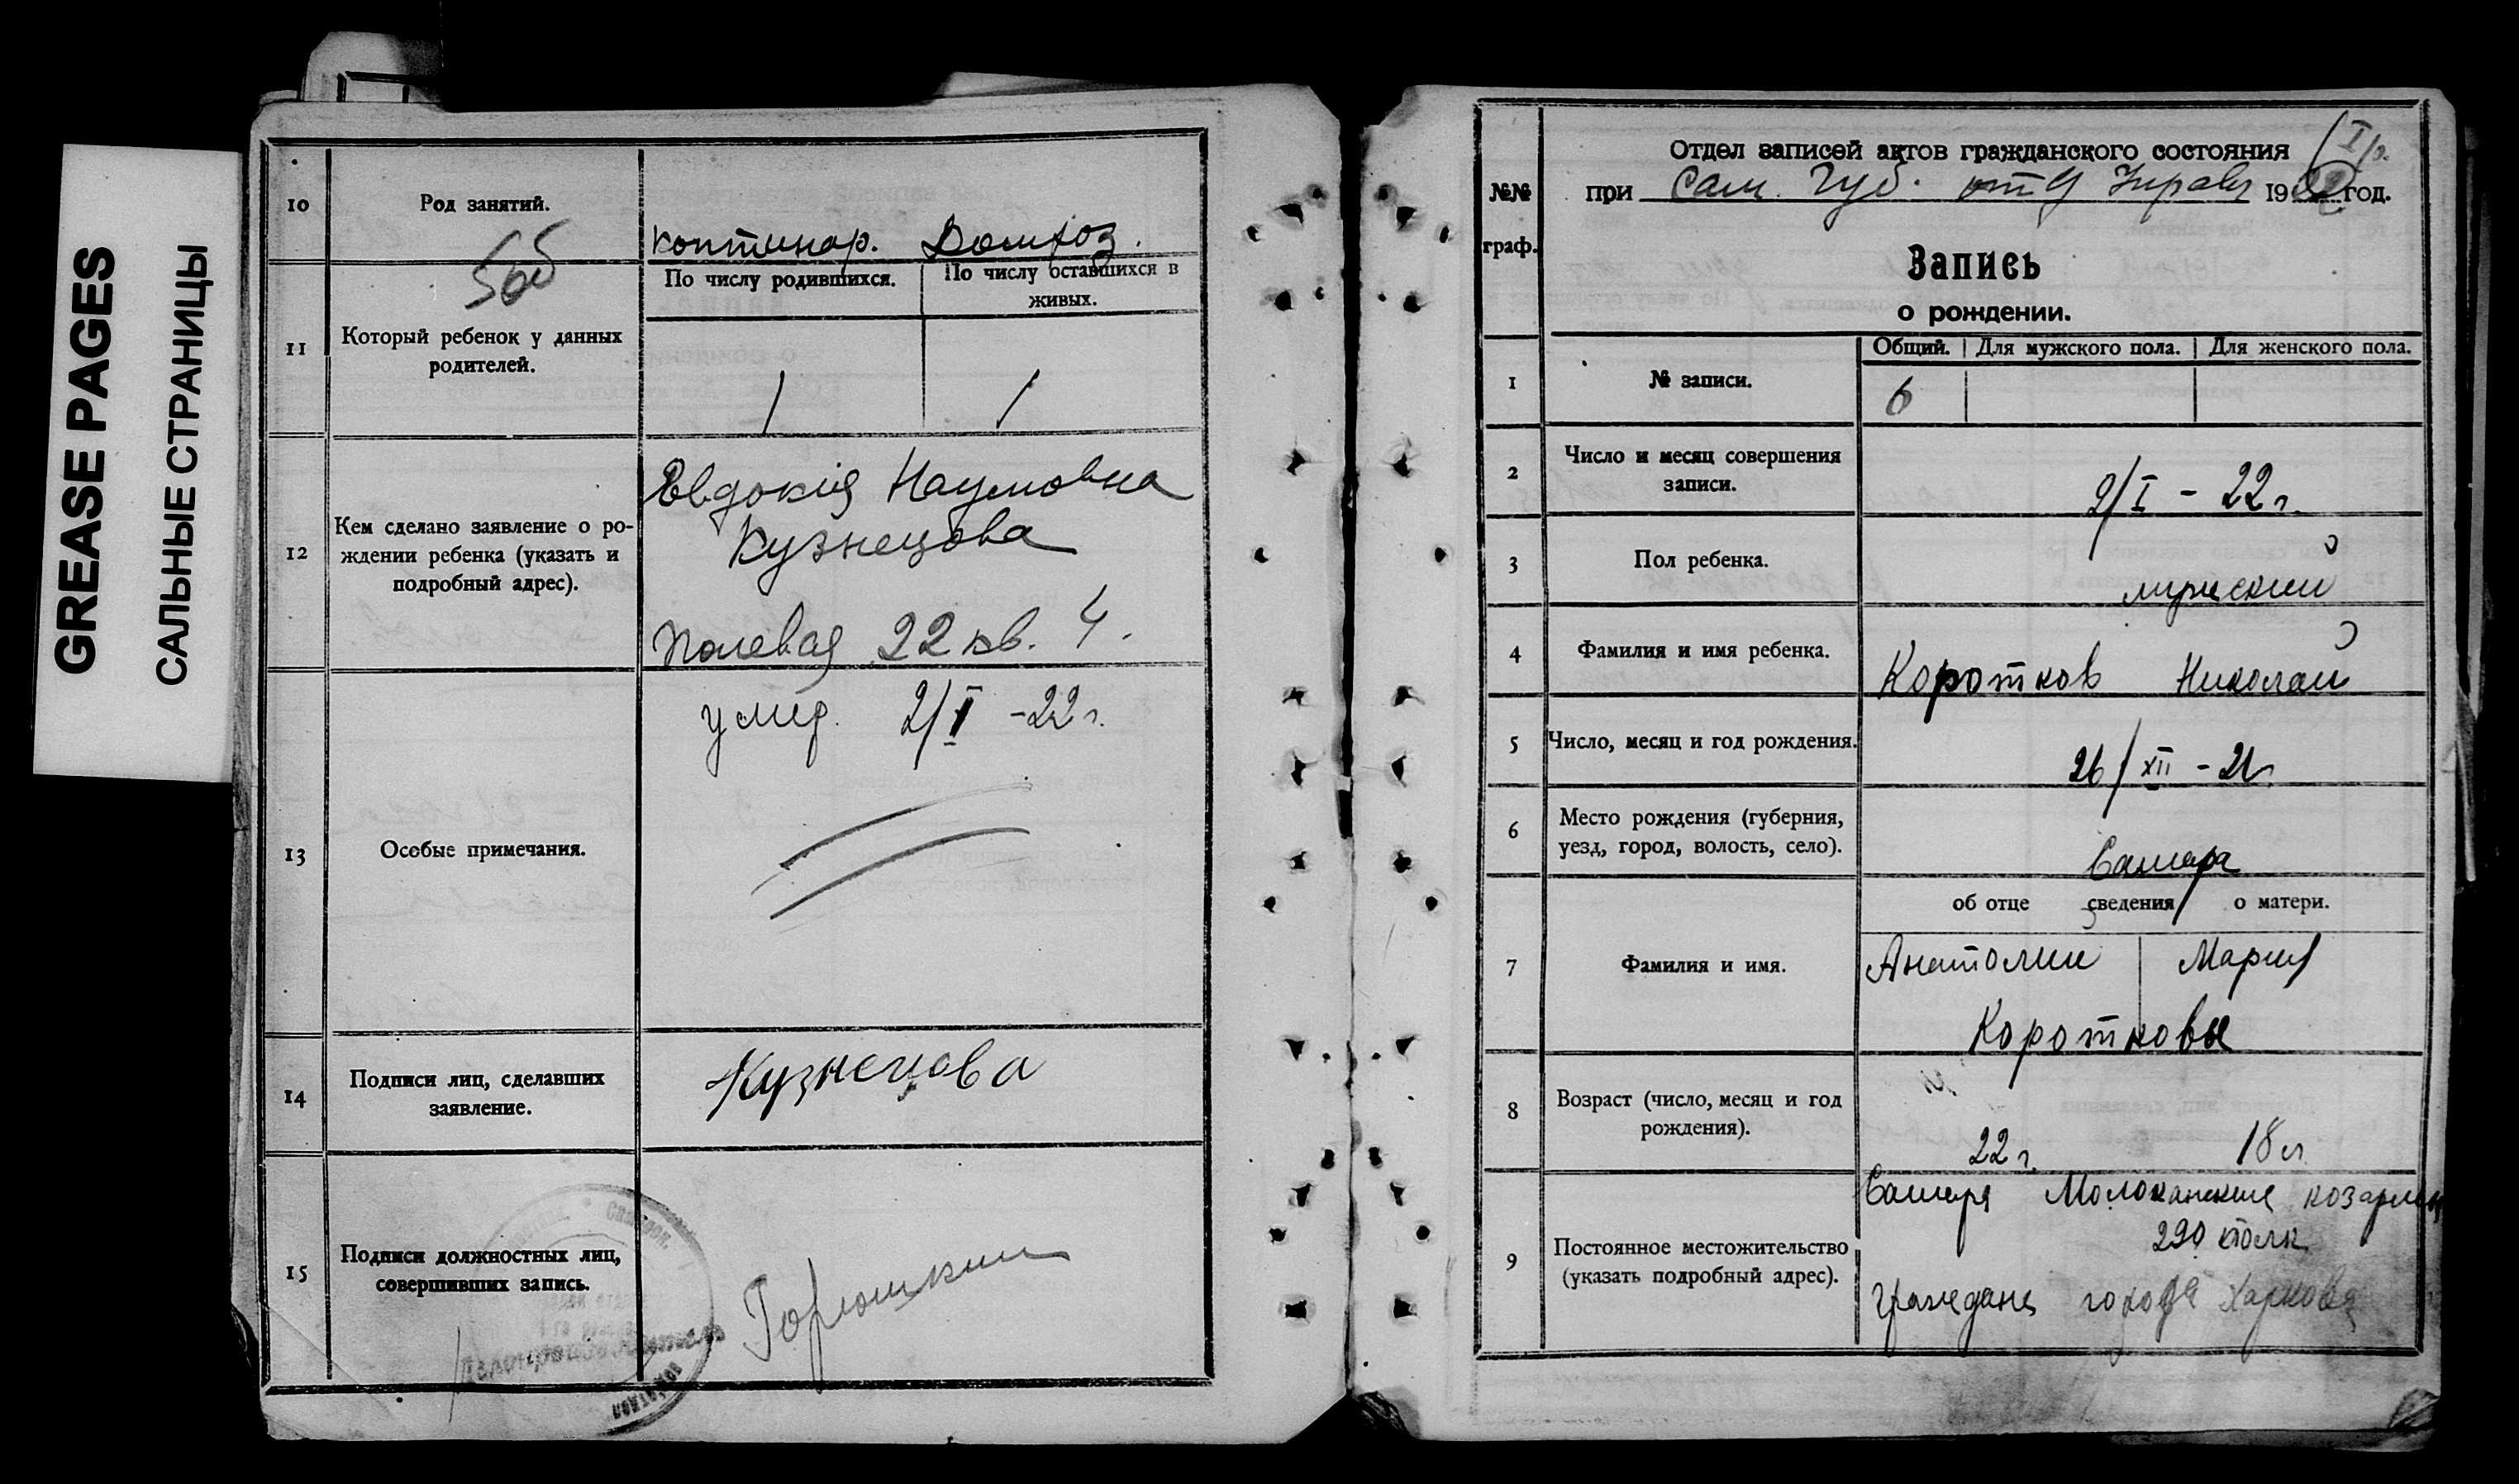 GREASE PAGES
САЛЬНЫЕ СТРАНИЦЫ
10
Род занятий.
континар. Домхоз.
11
Который ребенок у данных
родителей.
По числу родившихся.
По числу оставшихся в
живых.
1
1
12
Кем сделано заявление о ро-
ждении ребенка (указать и
подробный адрес).
Евдокия Наумовна
Кузнецова
Полевая 22 кв. 4.
13
Особые примечания.
умер. 2/I - 22 г.
14
Подписи лиц, сделавших
заявление.
Кузнецова
15
Подписи должностных лиц,
совершивших запись.
Горюшкин
I/р.
Отдел записей актов гражданского состояния
при Сам. Губ. отд Управ 1922 год.
№№
граф.
Запись
о рождении.
1
№ записи.
Общий.
Для мужского пола.
Для женского пола.
6
2
Число и месяц совершения
записи.
2/I - 22 г.
3
Пол ребенка.
мужской
4
Фамилия и имя ребенка.
Коротков Николай
5
Число, месяц и год рождения.
26/XII - 21 г.
6
Место рождения (губерния,
уезд, город, волость, село).
Самара
об отце сведения о матери.
7
Фамилия и имя.
Анатолий Мария
Коротковы
8
Возраст (число, месяц и год
рождения).
22 г. 18 л
9
Постоянное местожительство
(указать подробный адрес).
Самара Молоканские козармы
290 полк
Граждане города Харькова